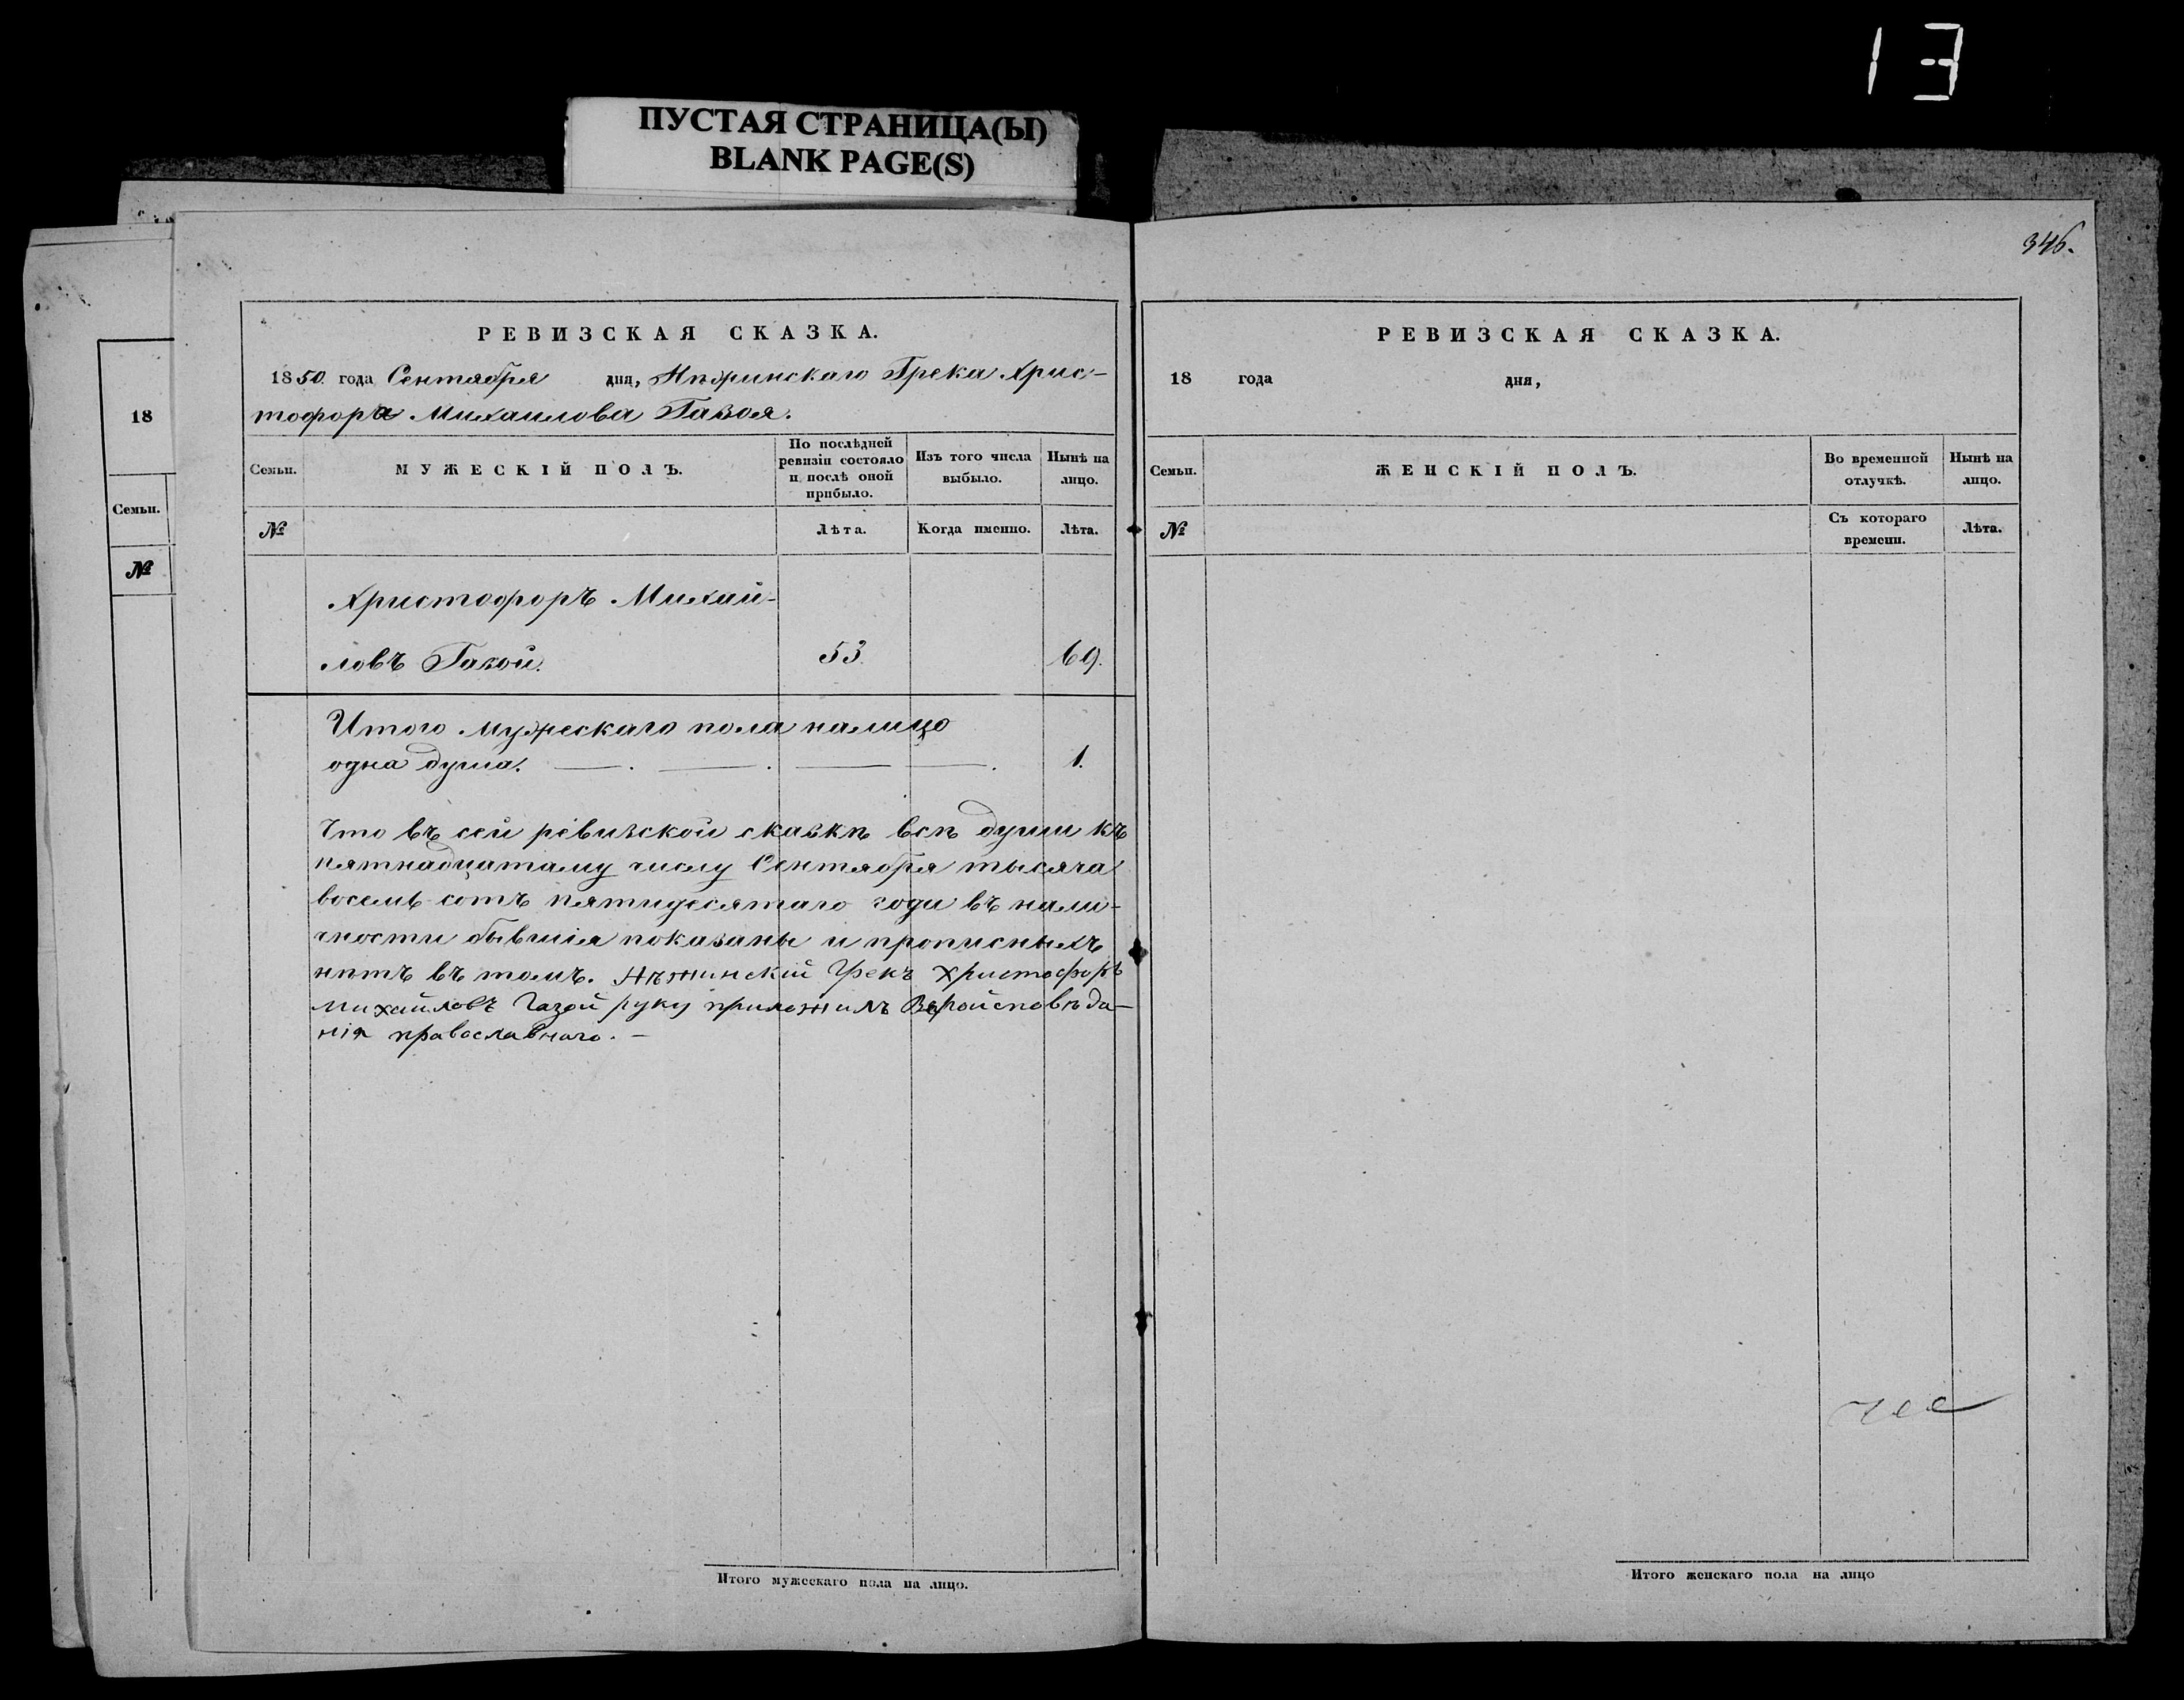 13
ПУСТАЯ СТРАНИЦА(Ы)
BLANK PAGE(S)
346.
18
Семьи.
№
РЕВИЗСКАЯ СКАЗКА.
1850. года Сентября дня, Нѣжинскаго Грека Хрис-
тофора Михаилова Газоя.
Семьи.
МУЖЕСКІЙ ПОЛЪ.
По послѣдней
ревизіи состояло
и послѣ оной
прибыло.
Изъ того числа
выбыло.
Нынѣ на
лицо.
№
Лѣта.
Когда именно.
Лѣта.
Христофоръ Михай-
ловъ Газой. 53. 69.
Итого мужескаго пола налицо
одна душа. 1.
Что въ сей ревизской сказкѣ всѣ души къ
пятнадцатому числу Сентября тысяча
восемь сотъ пятидесятаго года въ нали-
чности бывшія показаны и прописныхъ
нѣтъ въ томъ. Нѣжинскій Грекъ Христофоръ
Михайловъ Газой руку приложилъ Вѣроисповѣда-
нія православнаго. —
Итого мужескаго пола на лицо.
РЕВИЗСКАЯ СКАЗКА.
18 года дня,
Семьи.
ЖЕНСКІЙ ПОЛЪ.
Во временной
отлучкѣ.
Нынѣ на
лицо.
№
Съ котораго
времени.
Лѣта.
Итого женскаго пола на лицо